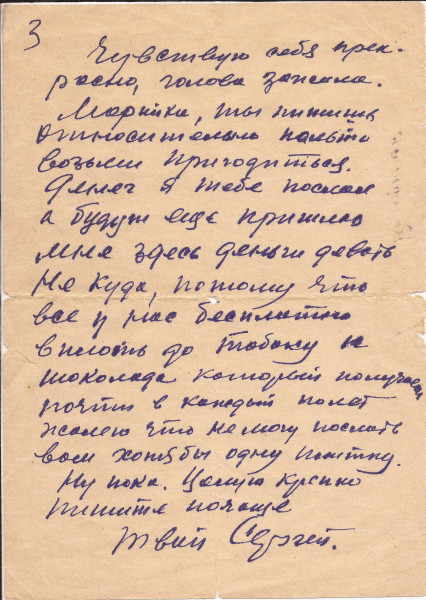 3
Чувствую себя прек-
расно, голова зажила.
Марийка, ты пишешь
относительно пальто
возьми пригодиться.
Денег я тебе послал
а будут ещё пришлю
мне здесь деньги девать
не куда, потому что
все у нас бесплатно
вплоть до табаку и
шоколада который получаем
почти в каждый полет
жалею что не могу послать
вам хотябы одну плитку.
Ну пока. Целую крепко
пишите почаще
твой Сергей.